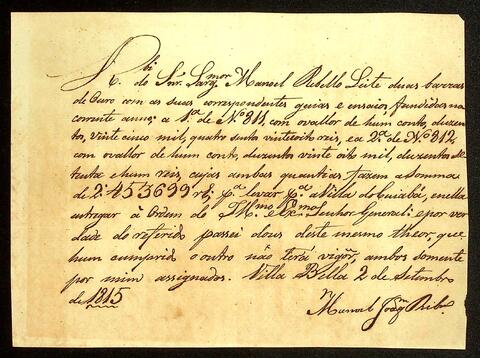 Rbi do Snr. Sargmor Manoel Rebello Leite duas barras
de Ouro com as suas correspondentes guias e ensaios, fundidas na
corrente anno; a 1a. de No. 811, com o vallor de hum conto, duzen
tos, vinte cinco mil, quatro sento vinteoito reis, e a 2a. de No. 812,
com o vallor de hum conto, duzentos vinte oito mil, duzentos se
tenta e hum reis, cujas ambas quantias fazem a Somma
de 2:453699 rs, pa. levar pa. a Villa do Cuiabá, e nella
entregar á Ordem do Illmo. e Exmo. Senhor General: e por ver
dade do referido passei dous deste mesmo theor, que
hum cumprido o outro não terá vigor, ambos somente
por mim assignados. Villa Bella 2 de Setembro
de 1815
Manoel Joaqm Ribro.